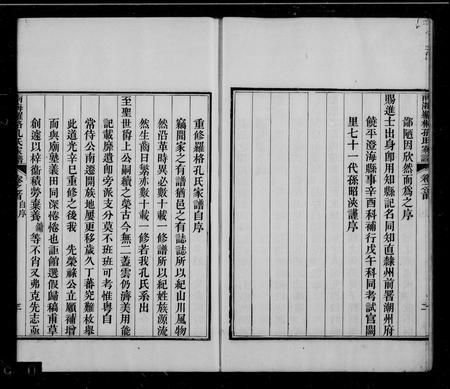 鄙陋因欣然而為之序
賜進士出身即用知縣記名同知直隸州前署潮州府
饒平澄海縣事辛酉科補行戊午科同考試官闕
里七十一代孫昭浹謹序
南海羅格孔氏家譜
重修羅格孔氏家譜自序
竊聞家之有譜猶邑之有誌誌所以紀山川風物
然沿革時異必數十載一修譜所以紀姓族源流
然生齒日繁亦數十載一修若我孔氏系出
至聖世衍上公嗣續之榮古今無二蓋雲仍濟美用能
記載靡遺即旁派支分莫不班班可考惟粵自
常侍公南遷開族地屢更移歲久丁蕃究難枚舉
此道光辛巳重修之後我 先榮祿公立願補增
而與廟塾義田同深惓惓也詎館選假歸稿甫草
創遽以梓 積勞棄養 等不肖又弗克先志亟
南海羅格孔氏家譜 卷之首 自序